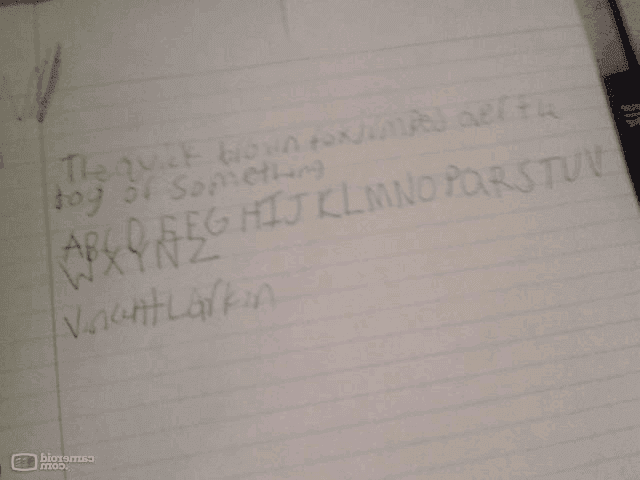 The quick brown fox jumped over the
dog or something
ABCD EFG HIJKLMNOPQRSTUV
WXYNZ
Vincent Larkin
cameroid
.com